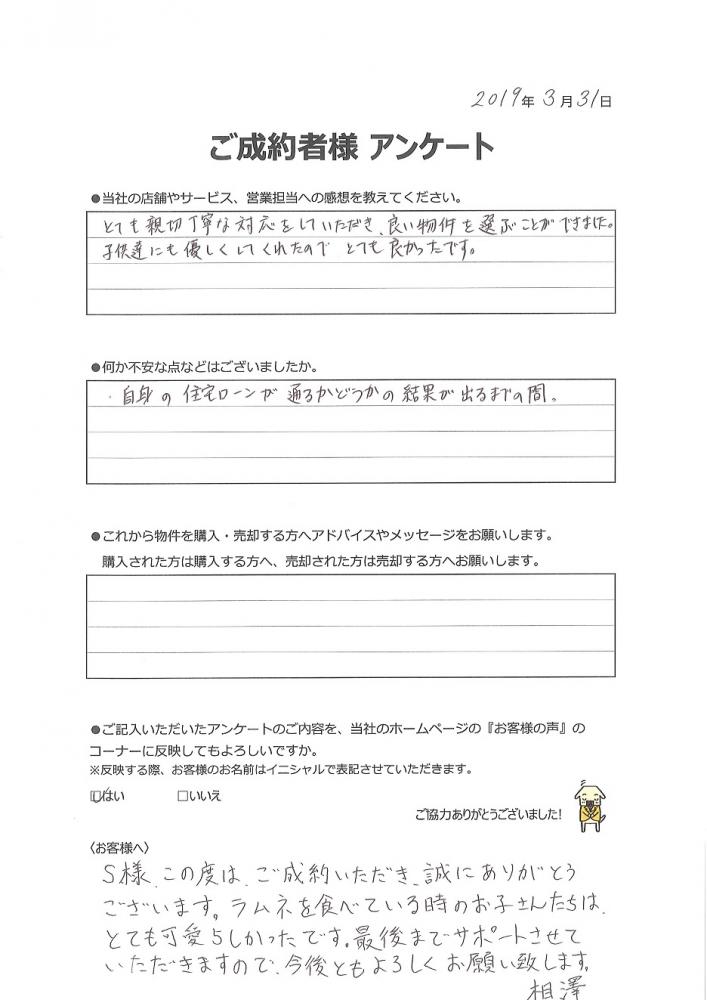 2019年3月31日
ご成約者様 アンケート
●当社の店舗やサービス、営業担当への感想を教えてください。
とても親切丁寧な対応をしていただき、良い物件を選ぶことができました。
子供達にも優しくしてくれたので とても良かったです。
●何か不安な点などはございましたか。
・自身の住宅ローンが通るかどうかの結果が出るまでの間。
●これから物件を購入・売却する方へアドバイスやメッセージをお願いします。
購入された方は購入する方へ、売却された方は売却する方へお願いします。
●ご記入いただいたアンケートのご内容を、当社のホームページの『お客様の声』の
コーナーに反映してもよろしいですか。
※反映する際、お客様のお名前はイニシャルで表記させていただきます。
☑はい □いいえ
ご協力ありがとうございました!
〈お客様へ〉
S様、この度は、ご成約いただき、誠にありがとう
ございます。ラムネを食べている時のお子さんたちは、
とても可愛らしかったです。最後までサポートさせて
いただきますので、今後ともよろしくお願い致します。
相澤